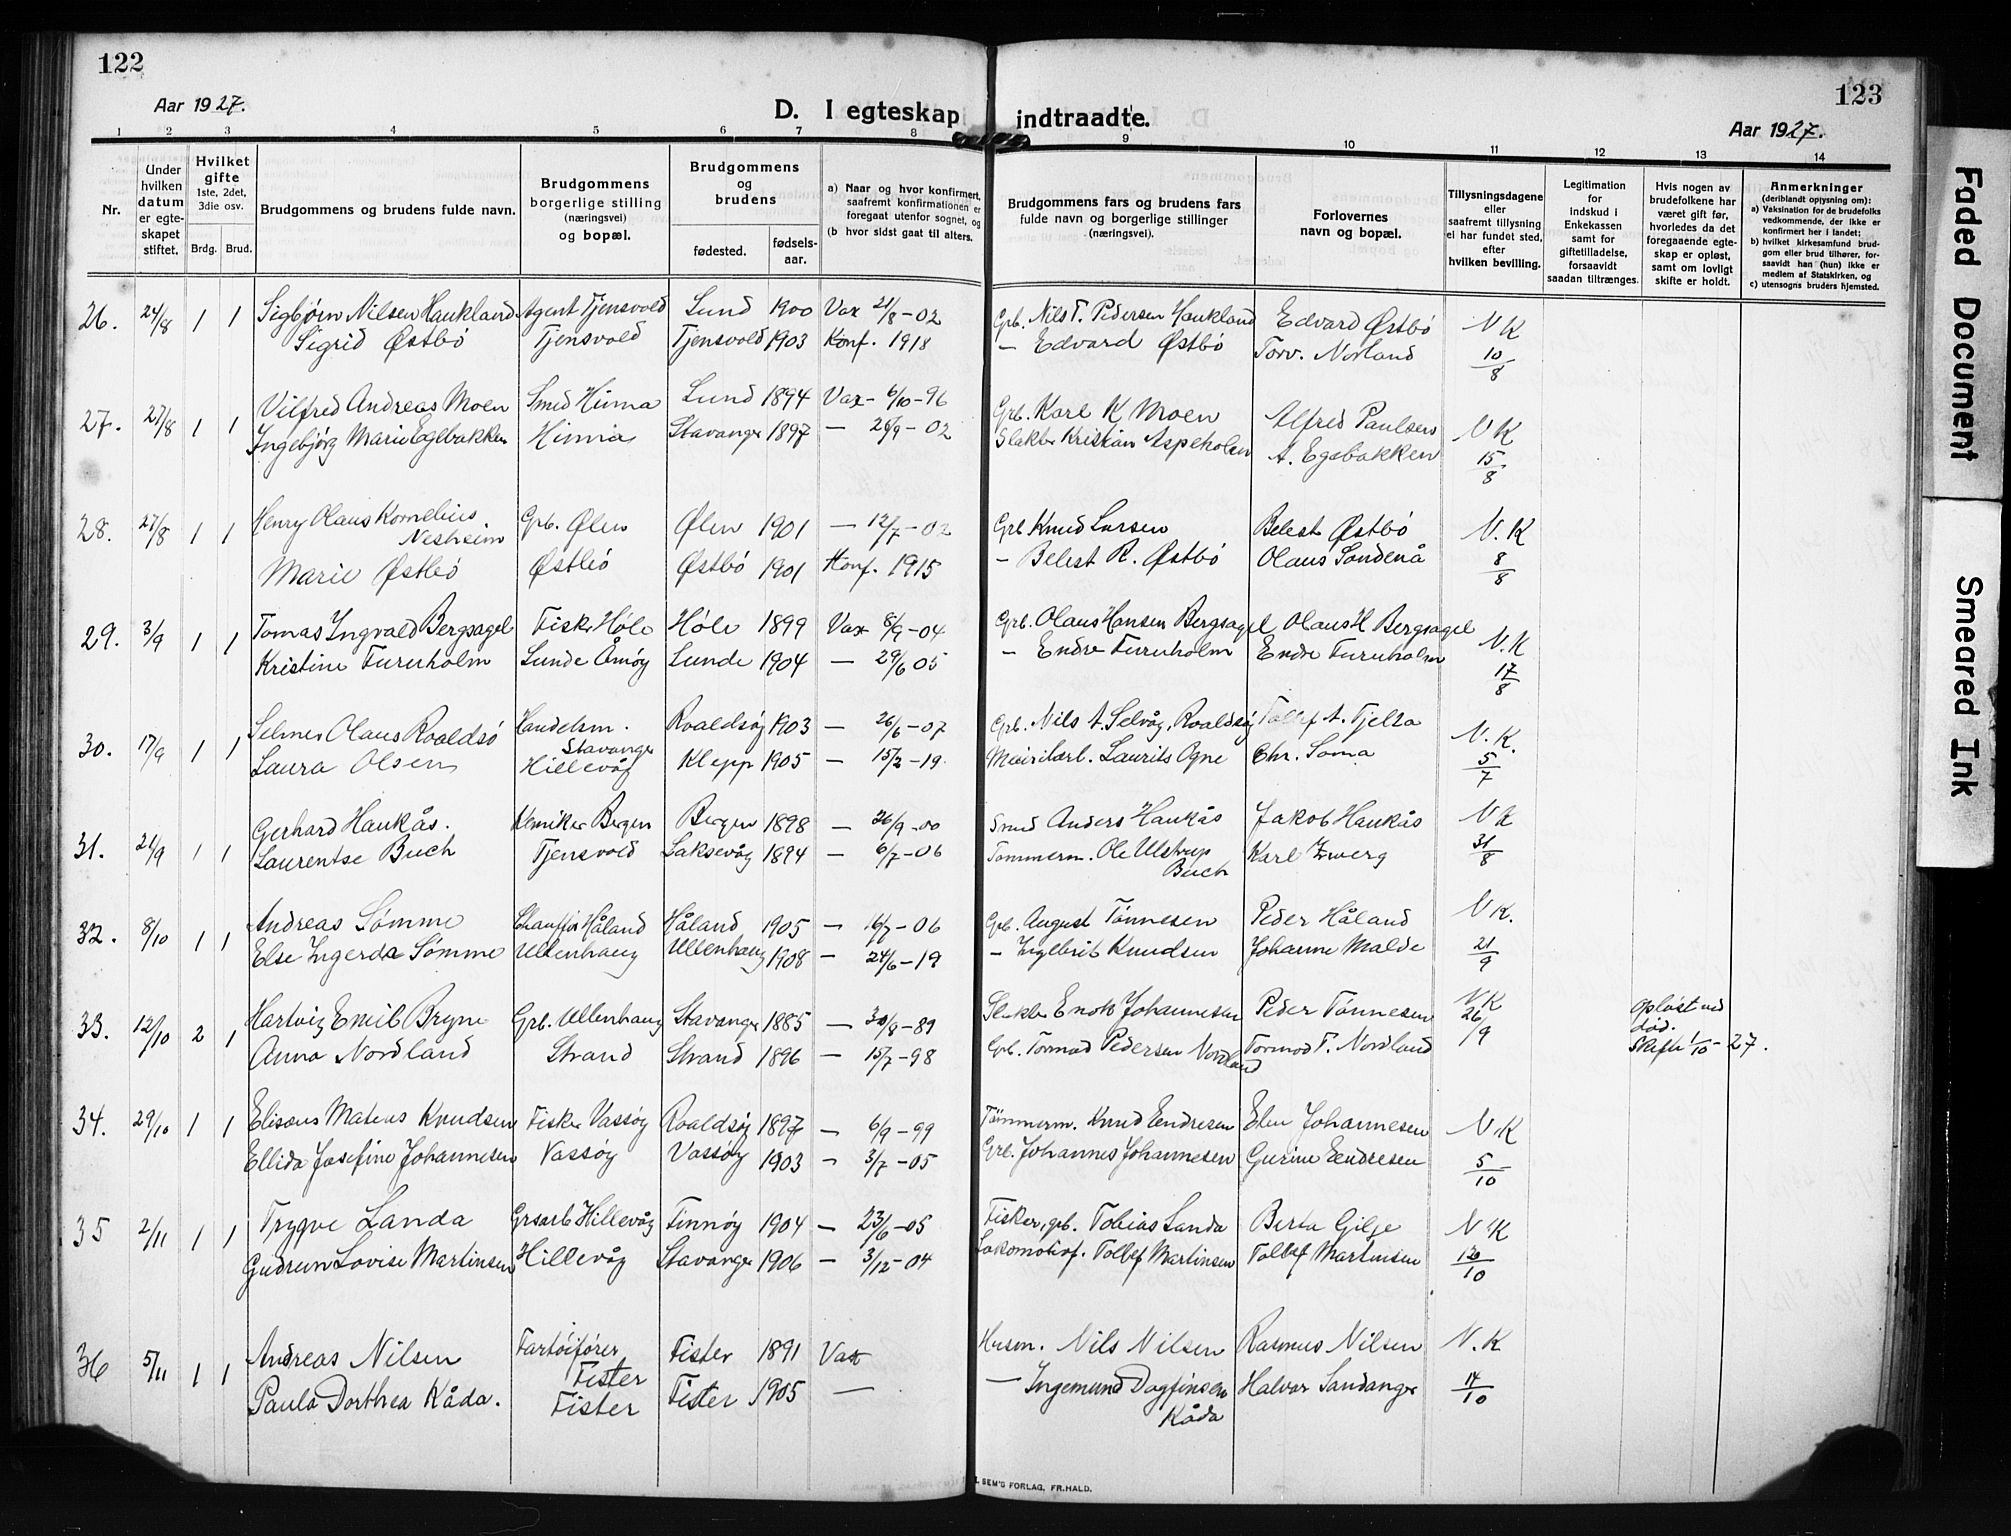 122
Aar 1927.
D. I egteskap indtraadte.
123
Aar 1927.
1 2 3 4 5 6 7 8 9 10 11 12 13 14
Nr.
Under hvilken datum er egteskapet stiftet.
Hvilket gifte 1ste, 2det, 3die osv.
Brdg. Brud.
Brudgommens og brudens fulde navn.
Brudgommens borgerlige stilling (næringsvei) og bopæl.
Brudgommens og brudens
fødested. fødsels-aar.
a) Naar og hvor konfirmert, saafremt konfirmationen er foregaat utenfor sognet, og
(b hvor sidst gaat til alters.
Brudgommens fars og brudens fars fulde navn og borgerlige stillinger (næringsvei).
Forlovernes navn og bopæl.
Tillysningsdagene eller saafremt tillysning ei har fundet sted, efter hvilken bevilling.
Legitimation for indskud i Enkekassen samt for giftetilladelse, forsaavidt saadan tiltrænges.
Hvis nogen av brudefolkene har været gift før, hvorledes da det foregaaende egteskap er opløst, samt om lovligt skifte er holdt.
Anmerkninger (deriblandt oplysning om):
a) Vaksination for de brudefolks vedkommende, der ikke er konfirmert her i landet;
b) hvilket kirkesamfund brudgom eller brud tilhører, forsaavidt han (hun) ikke er medlem af Statskirken, og
c) utensogns bruders hjemsted.
26. 24/8 1 1 Sigbjørn Nilsen Haukland Agent Tjensvold Lund 1900 Vax 21/8-02 Grb. Nils T. Pedersen Haukland Edvard Østbø N K
Sigrid Østbø Tjensvold Tjensvold 1903 Konf. 1918 — Edvard Østbø Torv. Norland 10/8
27. 27/8 1 1 Vilfred Andreas Moen Smed Hinna Lund 1894 Vax - 6/10-96 Grb. Karl K Moen Alfred Paulsen N K
Ingebjørg Marie Egebakken Hinna Stavanger 1897 — 26/9-02 Slakter Kristian Aspeholen A. Egebakken 15/8
28. 27/8 1 1 Henry Olaus Kornelius Nesheim Grb. Ølen Ølen 1901 — 12/7-02 Grb Knud Larsen Belest Østbø N. K
Marie Østbø Østbø Østbø 1901 Konf. 1915 — Belest R. Østbø Olaus Sandenå 8/8
29. 3/9 1 1 Tomas Ingvald Bergsagel Fisker Høle Høle 1899 Vax 8/9-04 Grb. Olaus Hansen Bergsagel Olaus H Bergsagel N. K
Kristine Furuholm Lunde Åmøy Lunde 1904 — 29/6 05 — Endre Furuholm Endre Furuholm 17/8
30. 17/9 1 1 Selmer Olaus Roaldsø Handelsm. Stavanger Roaldsøy 1903 — 26/6-07 Grb. Nils A. Selvåg, Roaldsøy Tollef A. Tjelta N. K.
Laura Olsen Hillevåg Klepp 1905 — 15/2-19 Meieribest. Laurits Ogne Chr. Soma 5/7
31. 21/9 1 1 Gerhard Haukås. Kemiker Bergen Bergen 1898 — 26/9-00 Smed Anders Haukås Jakob Haukås N K
Laurentse Buch Tjensvold Laksevåg 1894 — 6/7-06 Tømmerm. Ole Ulstrup Buch Karl Zwerg 31/8
32. 8/10 1 1 Andreas Sømme Chauffør Håland Håland 1905 — 16/7-06 Grb. August Tønnesen Peder Håland N K.
Else Ingerda Sømme Ullenhaug Ullenhaug 1908 — 24/6-19 — Ingebrit Knudsen Johanne Malde 21/9
33. 12/10 2 1 Hartvig Emil Bryne Grb. Ullenhaug Stavanger 1885 — 30/8-89 Slakter Enok Johannesen Peder Tønnesen N K 26/9 opløst ved død.
Anna Nordland Strand Strand 1896 — 15/7-98 Grb. Tormod Pedersen Nordland Tormod T. Nordland Skifte 1/10-27.
34. 29/10 1 1 Elisæus Mateus Knudsen Fisker Vassøy Roaldsøy 1897 — 6/9-99 Tømmerm. Knud Endresen Elen Johannesen N. K
Ellida Josefine Johannesen Vassøy Vassøy 1903 — 3/7-05 Grb. Johannes Johannesen Gurine Eendresen 5/10
35 2/11 1 1 Trygve Landa Grsarb Hillevåg Finnøy 1904 — 23/6-05 Fisker, grb. Tobias Landa Berta Gilje N K
Gudrun Lovise Martinsen Hillevåg Stavanger 1906 — 3/12-04 Lokomotivf. Tollef Martinsen Tollef Martinsen 12/10
36 5/11 1 1 Andreas Nilsen Fartøifører Fister Fister 1891 Vax Husm. Nils Nilsen Rasmus Nilsen N. K
Paula Dorthea Kåda. Fister Fister 1905 — — Ingemund Dagfinsen Kåda Halvor Sandanger 14/10
SEM'S FORLAG, FR.HALD.
Faded Document
Smeared Ink